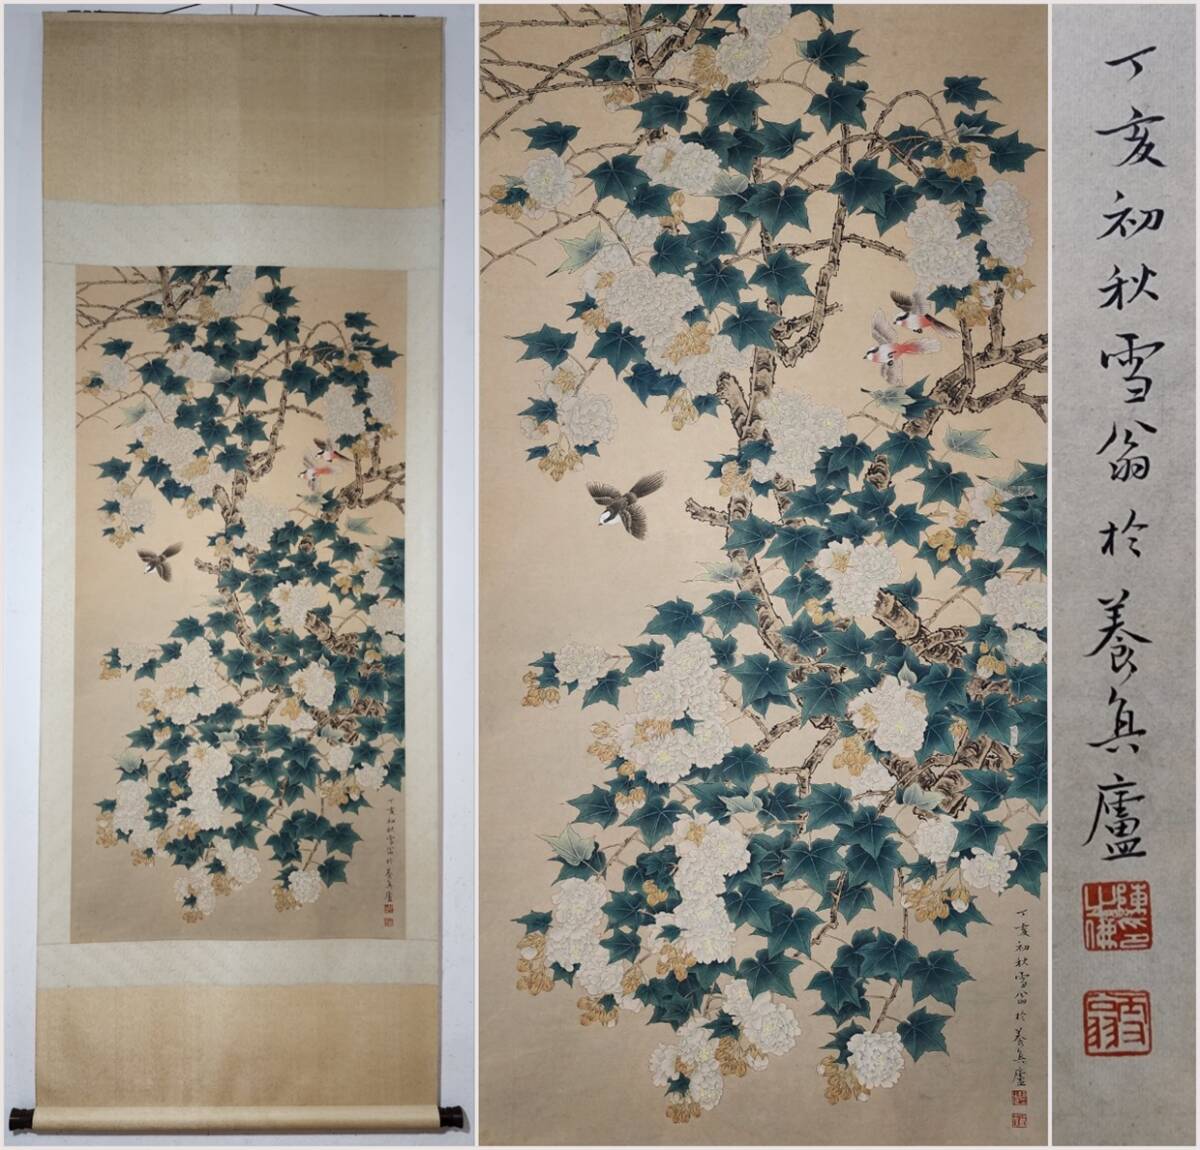 丁亥初秋雪翁於養真廬
丁亥初秋雪翁於養真廬
丁亥初秋雪翁於養真廬
陳之佛印
雪翁